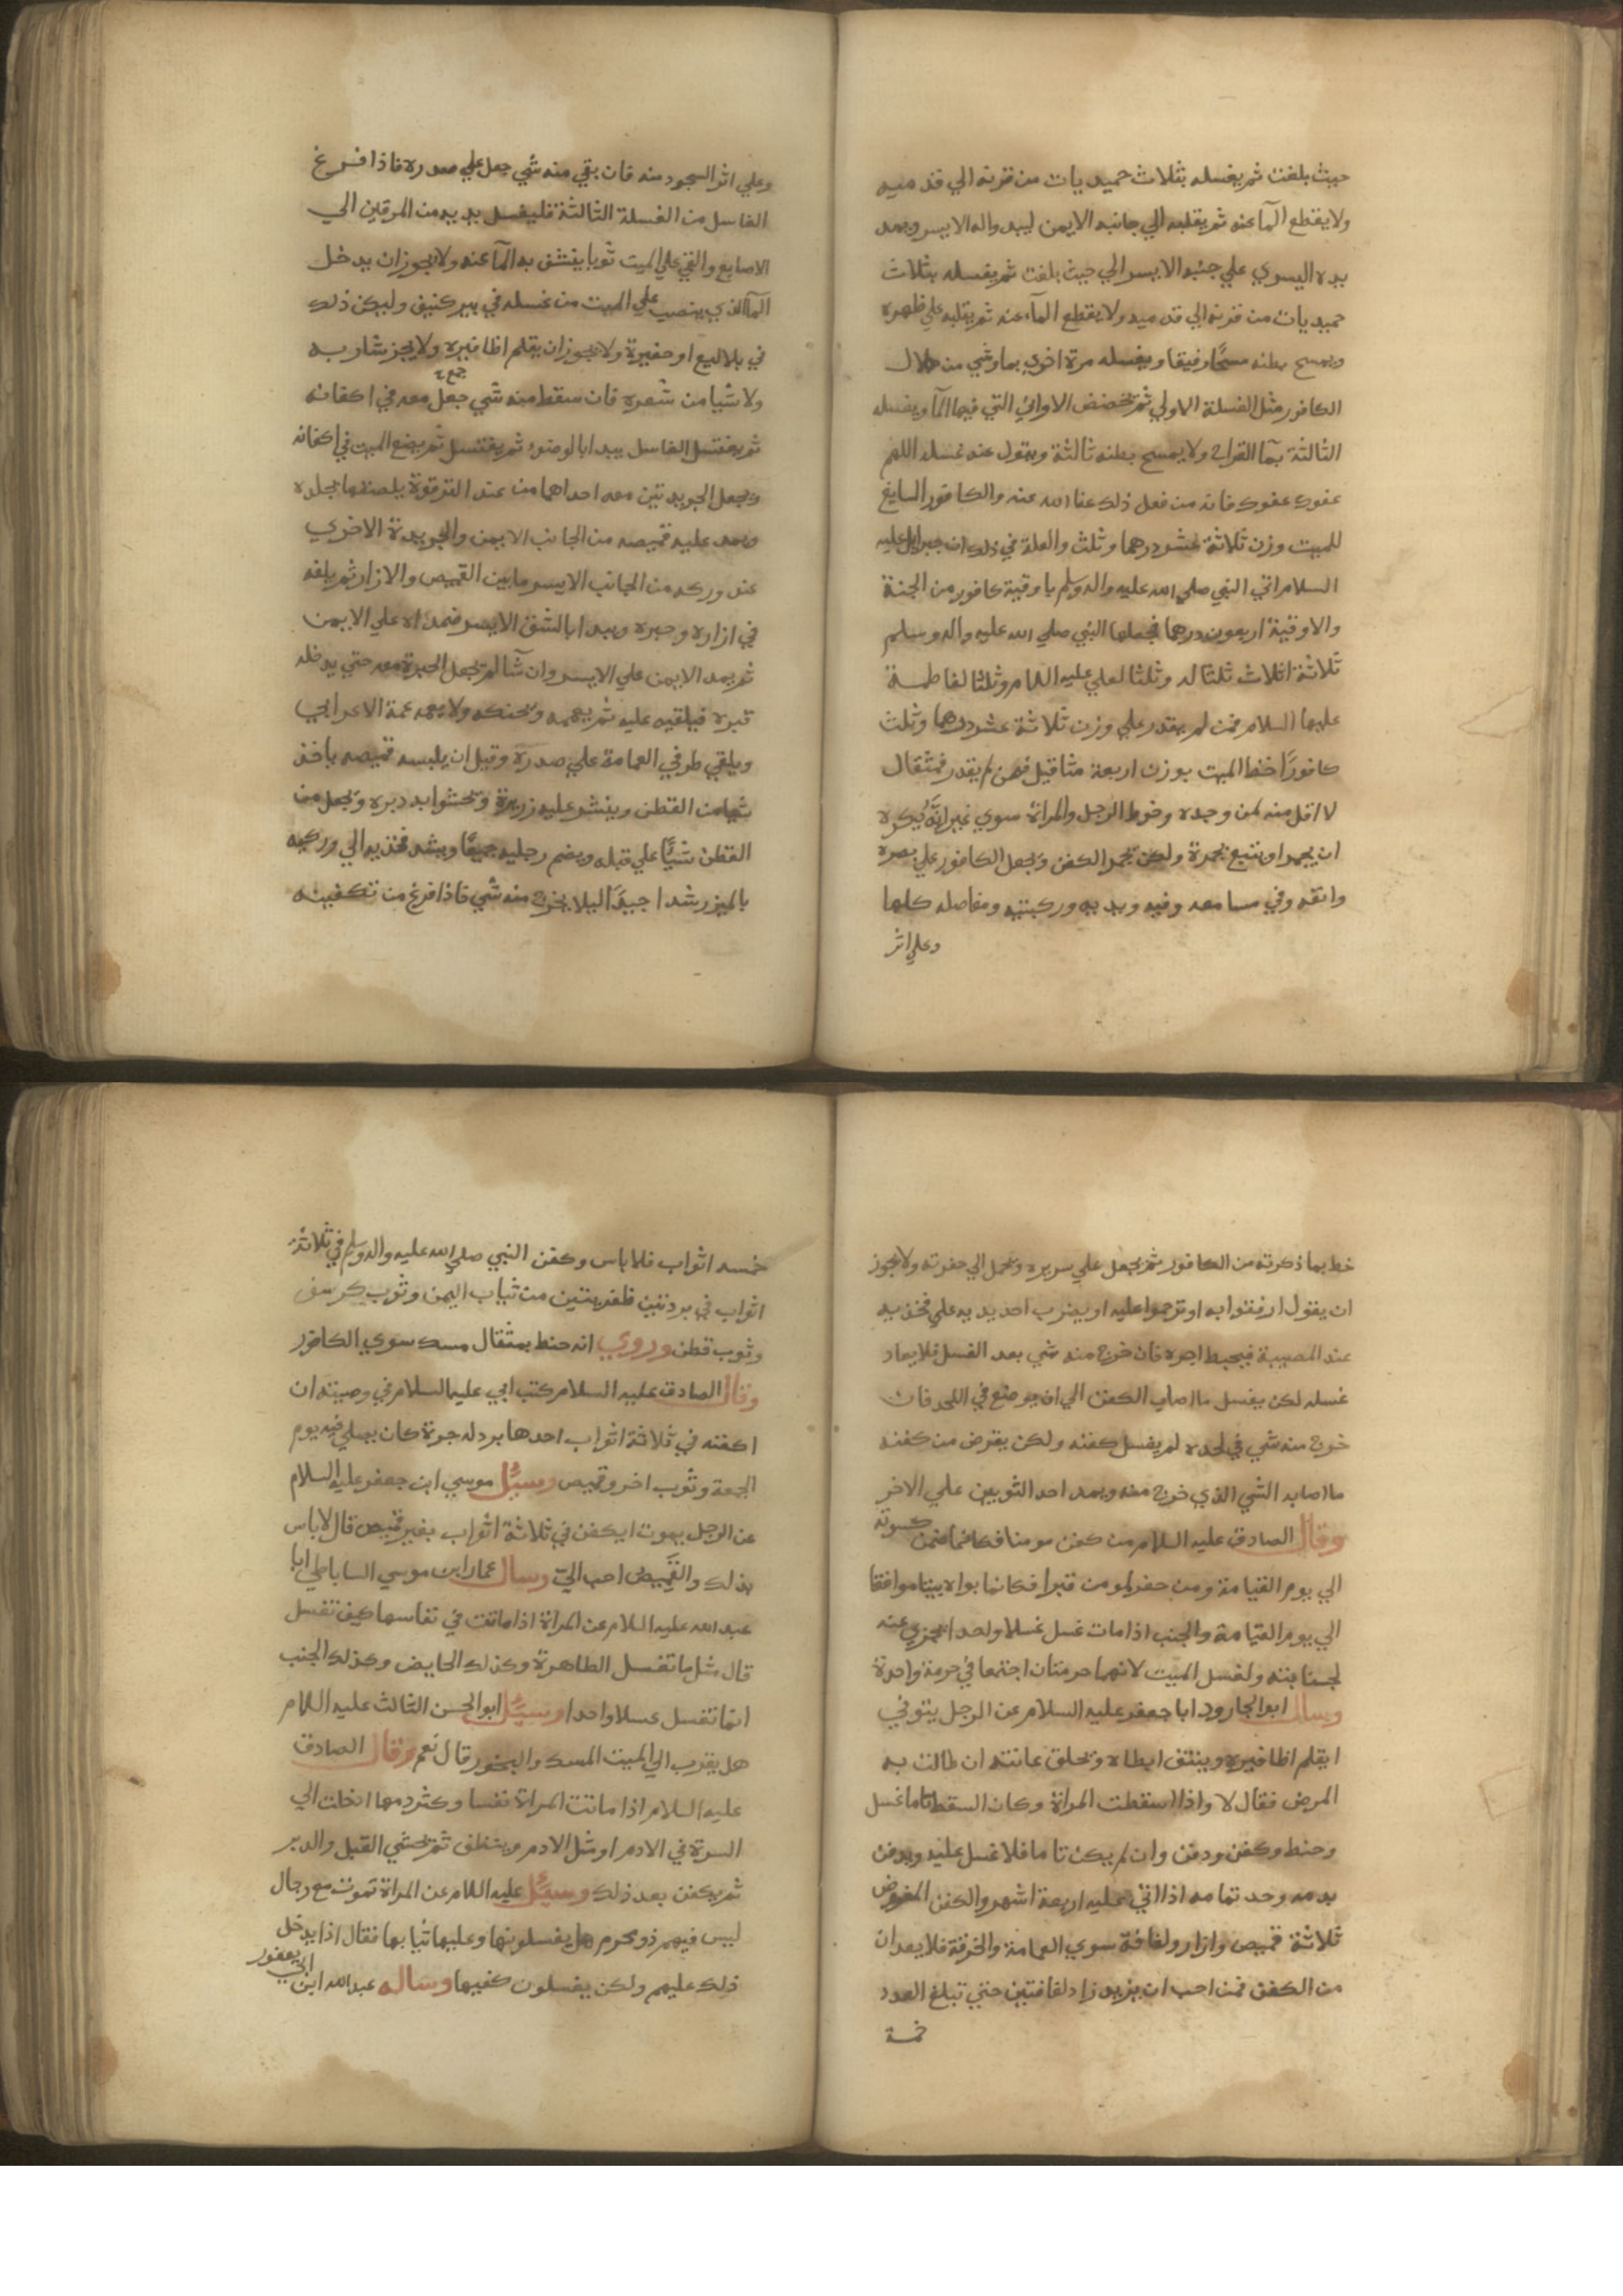 حيث بلغت ثم يغسله بثلاث حميديات من قرنه الي قدميه
ولا يقطع المآ عنه ثم يقلبه الي جانبه الايمن ليبدوا له الايسر ويمد
يده اليسري علي جنبه الايسر الي حيث بلغت ثم يغسله بثلاث
حميديات من قرنه الي قدميه ولا يقطع المآء عنه ثم يقلبه علي ظهره
ويمسح بطنه مسحًا رفيقا ويغسله مرة اخري بماوشي من جلال
الكافور مثل الغسلة الاولي ثم يخضخض الاواني التي فيها المآ ويغسله
الثالثة بمآ القراح ولا يمسح بطنه ثالثة ويقول عند غسله اللهم
عفوك عفوك فانه من فعل ذلك عفا الله عنه والكافور السايغ
للميت وزن ثلاثة عشر درهما وثلث والعلة في ذلك ان جبرايل عليه
السلام اتي النبي صلي الله عليه واله وسلم باوقية كافور من الجنة
والاوقية اربعون درهما فجعلها النبي صلي الله عليه واله وسلم
ثلاثة اثلاث ثلثا له وثلثا لعلي عليه السلام وثلثا لفاطمة
عليها السلام فمن لم يقدر علي وزن ثلاثة عشر درهما وثلث
كافورًا حنط الميت بوزن اربعة مثاقيل فمن لم يقدر فمثقال
لا اقل منه لمن وجده وحنوط الرجل والمراة سوي غير انّه يكره
ان يجمر او يتبع بمجمرة ولكن يجمر الكفن ويجعل الكافور علي بصره
وانفه وفي مسامعه وفيه ويديه وركبتيه ومفاصله كلها
وعلي اثر
وعلي اثر السجود منه فان بقي منه شي جعل علي صدره فاذا فرغ
الغاسل من الغسلة الثالثة فليغسل يديه من المرفقين الي
الاصابع والقي علي الميت ثوبا ينشف به المآ عنه ولا يجوز ان يدخل
المآ الذي ينصب علي الميت من غسله في بير كنيف وليكن ذلك
في بلاليع او حفيرة ولا يجوز ان يقلم اظافيره ولا يجز شاربه
ولا شيا من شعره فان سقط منه شي جعل معه في اكفانه
ثم يغتسل الغاسل يبدا بالوضوء ثم يغتسل ثم يضع الميت في اكفانه
ويجعل الجريدتين معه احداهما من عند الترقوة يلصقها بجلده
ويمد عليه قميصه من الجانب الايمن والجريدة الاخري
عند وركه من الجانب الايسر ما بين القميص والازار ثم يلفه
في ازاره وحبره ويبدا بالشق الايسر فمده علي الايمن
ثم يمد الايمن علي الايسر وان شآ لم يجعل الحبرة معه حتي يدخله
قبره فيلقيه عليه ثم يعممه ويحنكه ولا يعممه عمة الاعرابي
ويلقي طرفي العمامة علي صدره وقبل ان يلبسه قميصه ياخذ
شيا من القطن وينثر عليه زريرة ويحشوا به دبره ويجعل من
القطن شيًّا علي قبله ويضم رجليه جميعًا ويشد فخذيه الي وركيه
بالميزر شدا جيدًا ليلا يخرج منه شي فاذا فرغ من تكفينه
خط بما ذكرته من الكافور ثم يجعل علي سريره ويحمل الي حفرته ولا يجوز
ان يقول ارفقوا به او ترحموا عليه او يضرب احد يديه علي فخذيه
عند المصيبة فيحبط اجره فان خرج منه شي بعد الغسل فلا يعاد
غسله لكن يغسل ما اصاب الكفن الي ان يوضع في اللحد فان
خرج منه شي في لحده لم يغسل كفنه ولكن يقرض من كفنه
ما اصابه الشي الذي خرج منه ويمد احد الثوبين علي الاخر
وقال الصادق عليه السلام من كفن مومنا فكانما ضمن كسوته
الي يوم القيامة ومن حفر لمومن قبرا فكانما بواه بيتا موافقا
الي يوم القيامة والجنب اذا مات غسل غسلا واحدا يجزي عنه
لجنابته ولغسل الميت لانهما حرمتان اجتمعا في حرمة واحدة
وسال ابو الجارود ابا جعفر عليه السلام عن الرجل يتوفي
ايقلم اظافيره وينتف ابطاه وتحلق عانته ان طالت به
المرض فقال لا واذا اسقطت المراة وكان السقط تاما غسل
وحنط وكفن ودفن وان لم يكن تاما فلا غسل عليه ويدفن
بدمه وحد تمامه اذا اتي عليه اربعة اشهر والكفن المفروض
ثلاثة قميص وازار ولفافة سوي العمامة والخرقة فلا يعدان
من الكفن فمن احب ان يزيد زاد لفافتين حتي تبلغ العدد
خمسة
خمسه اثواب فلا باس وكفن النبي صلي الله عليه واله وسلم في ثلاثة
اثواب في بردتين ظفريتين من ثياب اليمن وثوب كرسف
وثوب قطن وروي انه حنط بمثقال مسك سوي الكافور
وقال الصادق عليه السلام كتب ابي عليه السلام في وصيته ان
اكفنه في ثلاثة اثواب احدها برد له حبرة كان يصلي فيه يوم
الجمعة وثوب اخر وقميص وسيُل موسي ابن جعفر عليه السلام
عن الرجل يموت ايكفن في ثلاثة اثواب بغير قميص قال لا باس
بذلك والقميص احب اليّ وسال عمار ابن موسي الساباطي ابا
عبد الله عليه السلام عن المراة اذا ماتت في نفاسها كيف تغسل
قال مثل ما تغسل الطاهرة وكذلك الحايض وكذلك الجنب
انما تغسل غسلا واحدا وسيُل ابو الحسن الثالث عليه السلام
هل يقرب الي الميت المسك والبخور قال نعم وقال الصادق
عليه السلام اذا ماتت المراة نفسا وكثر دمها ادخلت الي
السرة في الادم او مثل الادم وينظف ثم يحشي القبل والدبر
ثم يكفن بعد ذلك وسيُل عليه السلام عن المراة تموت مع رجال
ليس فيهم ذو محرم هل يغسلونها وعليها ثيابها فقال اذا يدخل
ذلك عليهم ولكن يغسلون كفيها وساله عبد الله ابن ابي يعفور